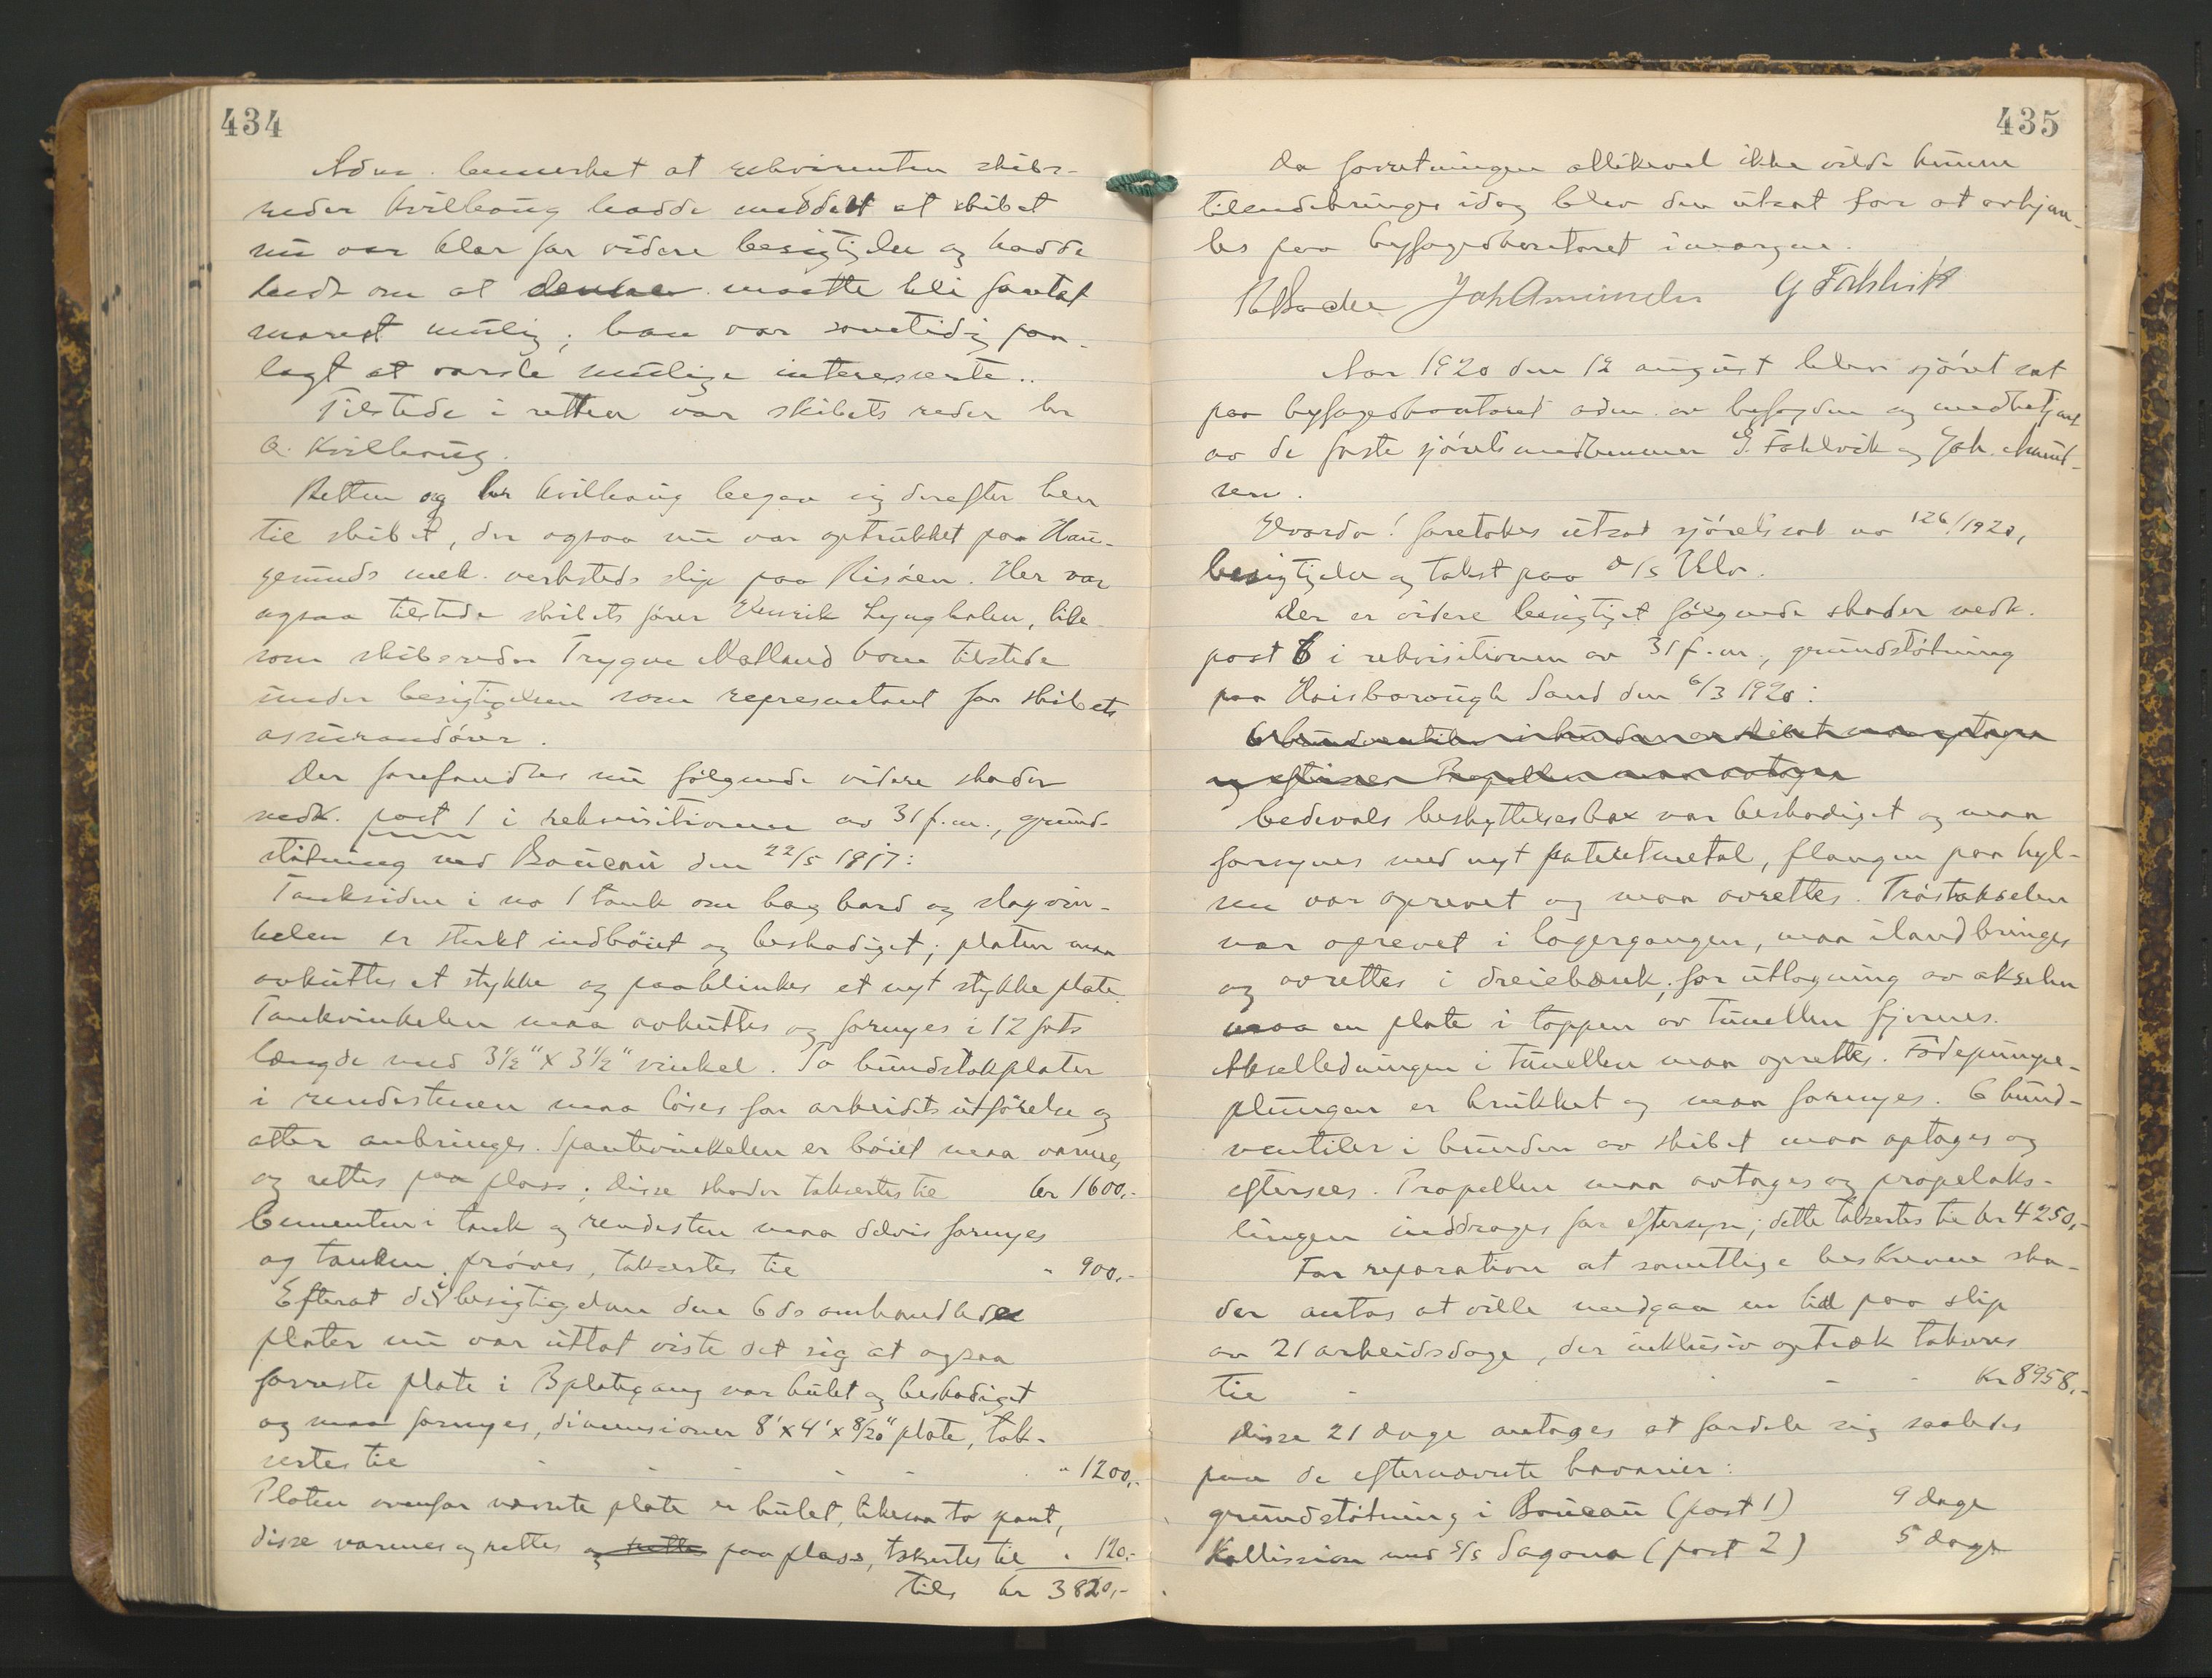 434
Adm. bemerket at rekvirenten skibs-
reder Kvilhaug hadde meddelt at skibet
nu var klar for videre besigtigelse og hadde
bedt om at denne maatte bli foretat
snarest mulig; han var samtidig paa-
lagt at varsle mulige interesserte..
Tilstede i retten var skibets reder hr
A. Kvilhaug.
Retten og hr Kvilhaug begav sig derefter hen
til skibet, der ogsaa nu var optrukket paa Hau-
gesunds mek. verksteds slip paa Risöen. Her var
ogsaa tilstede skibets förer Henrik Lyngholm, like-
som skibsreder Trygve Matland kom tilstede
under besigtigelsen som representant for skibets
assurandörer.
Der forefandtes nu fölgende videre skader
vedk. post 1 i rekvisitionen av 31 f.m., grund-
stötning ved Boucau den 22/5 1917:
Tanksiden i no 1 tank om bagbord og slagvin-
kelen er sterkt indböiet og beskadiget; platen maa
avkuttes et stykke og paaklinkes et nyt stykke plate.
Tankvinkelen maa avkuttes og fornyes i 12 fots
længde med 3½" x 3½" vinkel. To bundstokplater
i rendestenen maa löses for arbeidets utförelse og
atter anbringes. Spantevinkelen er böiet maa varmes
og rettes paa plass; disse skader takseres til kr 1600,-
Cementen i tank og rendesten maa delvis fornyes
og tanken prøves, takseres til " 900,-
Efterat de i besigtigelsen den 6 ds omhandlede
plater nu var uttat viste det sig at ogsaa
forreste plate i B plategang var bulet og beskadiget
og maa fornyes, dimensioner 8' x 4' x 8/20" plate, tak-
sertes til - - - - - " 1200,-
Platen ovenfor nævnte plate er bulet, likesaa to spant,
disse varmes og rettes og rettes paa plass, takseres til " 120,-
tils kr 3820,-
435
Da forretningen allikevel ikke vilde kunne
tilendebringes idag blev den utsat for at avhjem-
les paa byfogedkontoret imorgen.
Joh Amundsen G Fahlvik
Aar 1920 den 12 august blev sjöret sat
paa byfogedkontoret adm. av byfogden og medbetjent
av de faste sjöretsmedlemmer G. Fahlvik og Joh. Amund-
sen.
Hvorda! foretokes utsat sjöretssak no 126/1920,
besigtigelse og takst paa d/s Ulv.
Der er videre besigtiget fölgende skader vedk.
post 6 i rekvisitionen av 31 f.m., grundstötning
paa Haisborough Sand den 6/3 1920:
6 bundventiler i bunden av skibet maa optages
og eftersees. Propellen maa avtages
Cedevals beskyttelsesbox var beskadiget og maa
forsynes med nyt patentmetal, flangen paa hyl-
sen var oprevet og maa avrettes. Tröstakselen
var oprevet i lagergangen, maa ilandbringes
og avrettes i dreiebænk; for utlagning av akselen
maa en plate i toppen av tunellen fjernes.
Akselledningen i tunellen maa oprettes. Födepumpe-
plunger er brukket og maa fornyes. 6 bund-
ventiler i bunden av skibet maa optages og
eftersees. Propellen maa avtages og propelaks-
lingen inddrages for eftersyn; dette takseres til kr 4250,-
For reparation at samtlige beskrevne ska-
der antas at ville medgaa en tid paa slip
av 21 arbeidsdage, der inklusiv optræk takseres
til - - - Kr 8958,-
Disse 21 dage antages at fordele sig saaledes
paa de efternævnte havarier:
grundstötning i Boucau (post 1) 9 dage
Kollission med s/s Sagona (post 2) 5 dage